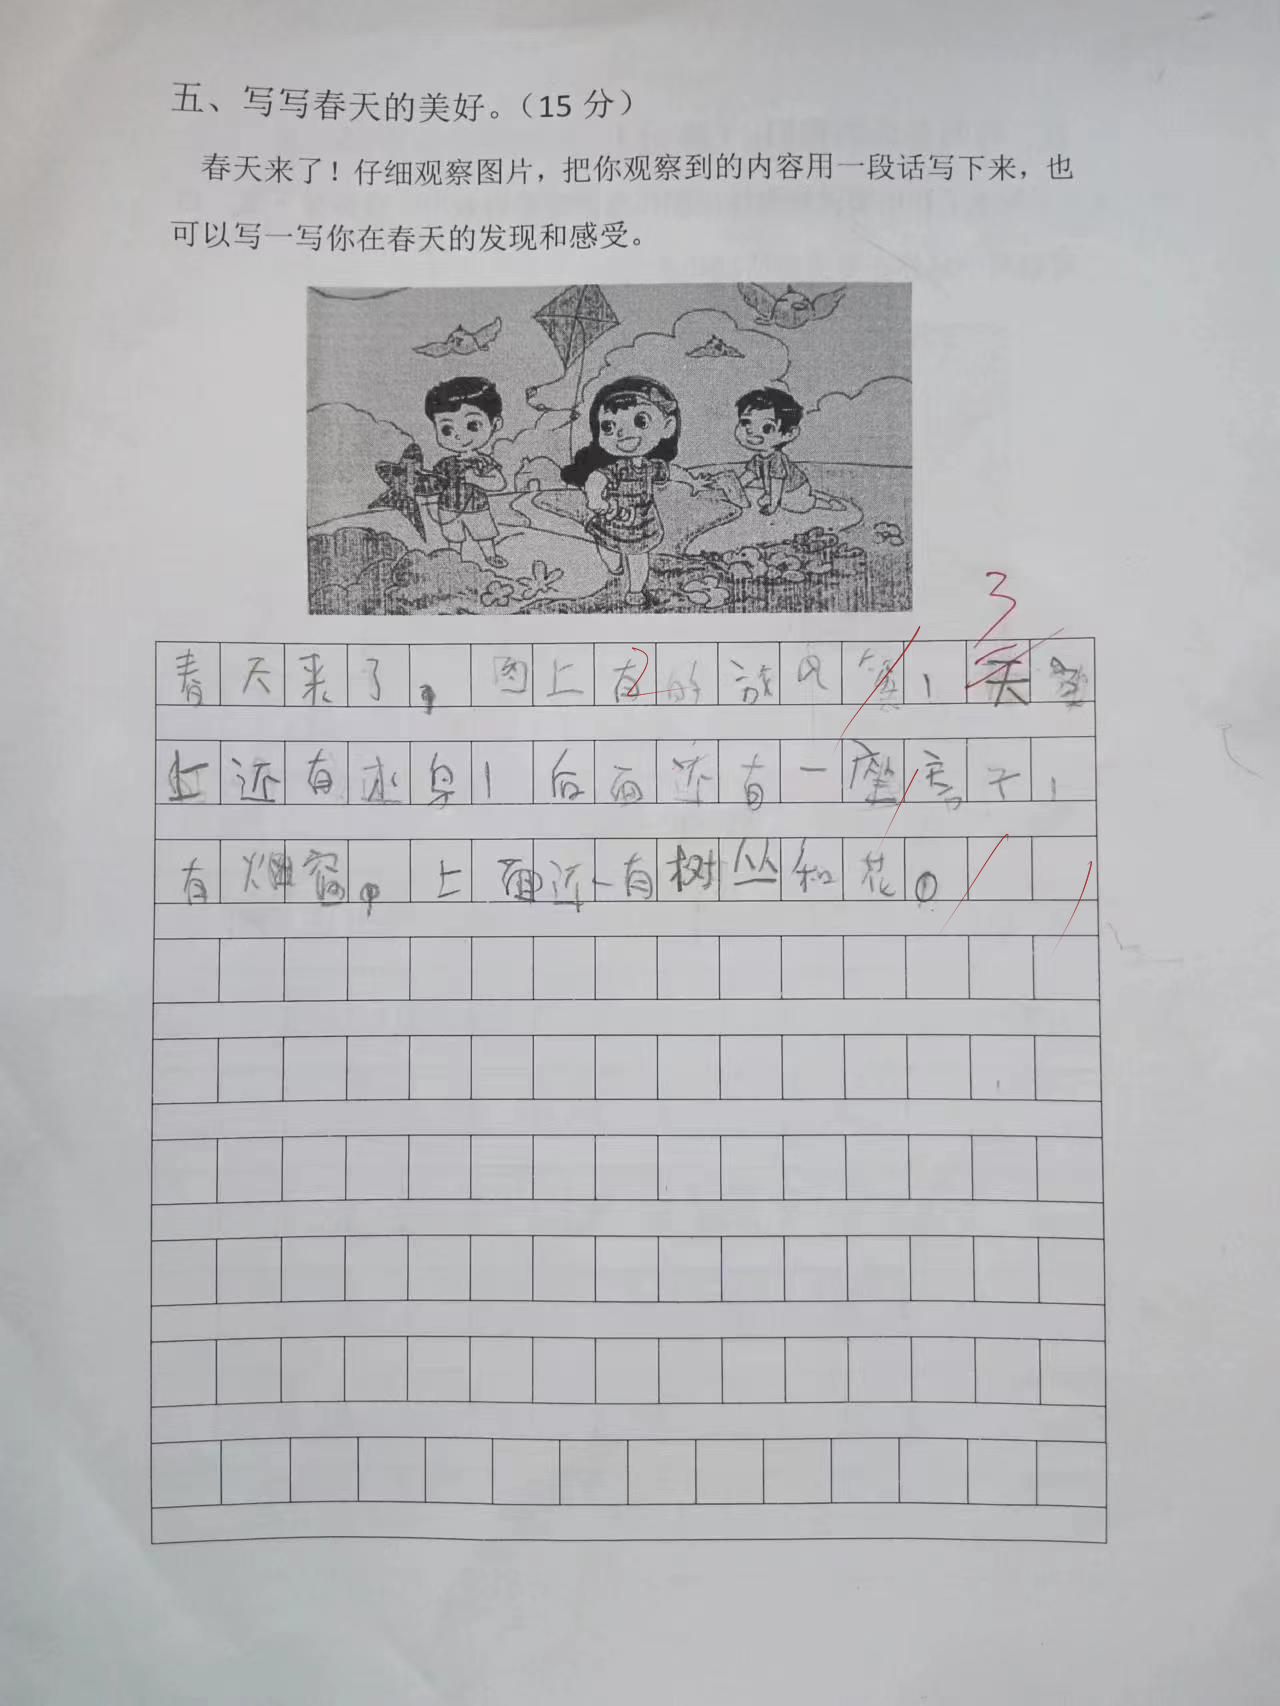 五、写写春天的美好。（15 分）
春天来了！仔细观察图片，把你观察到的内容用一段话写下来，也
可以写一写你在春天的发现和感受。
3
春天来了，图上有的放风筝，天空
2
上还有小鸟，后面还有一座房子，
有烟窗，上面还有树丛和花。